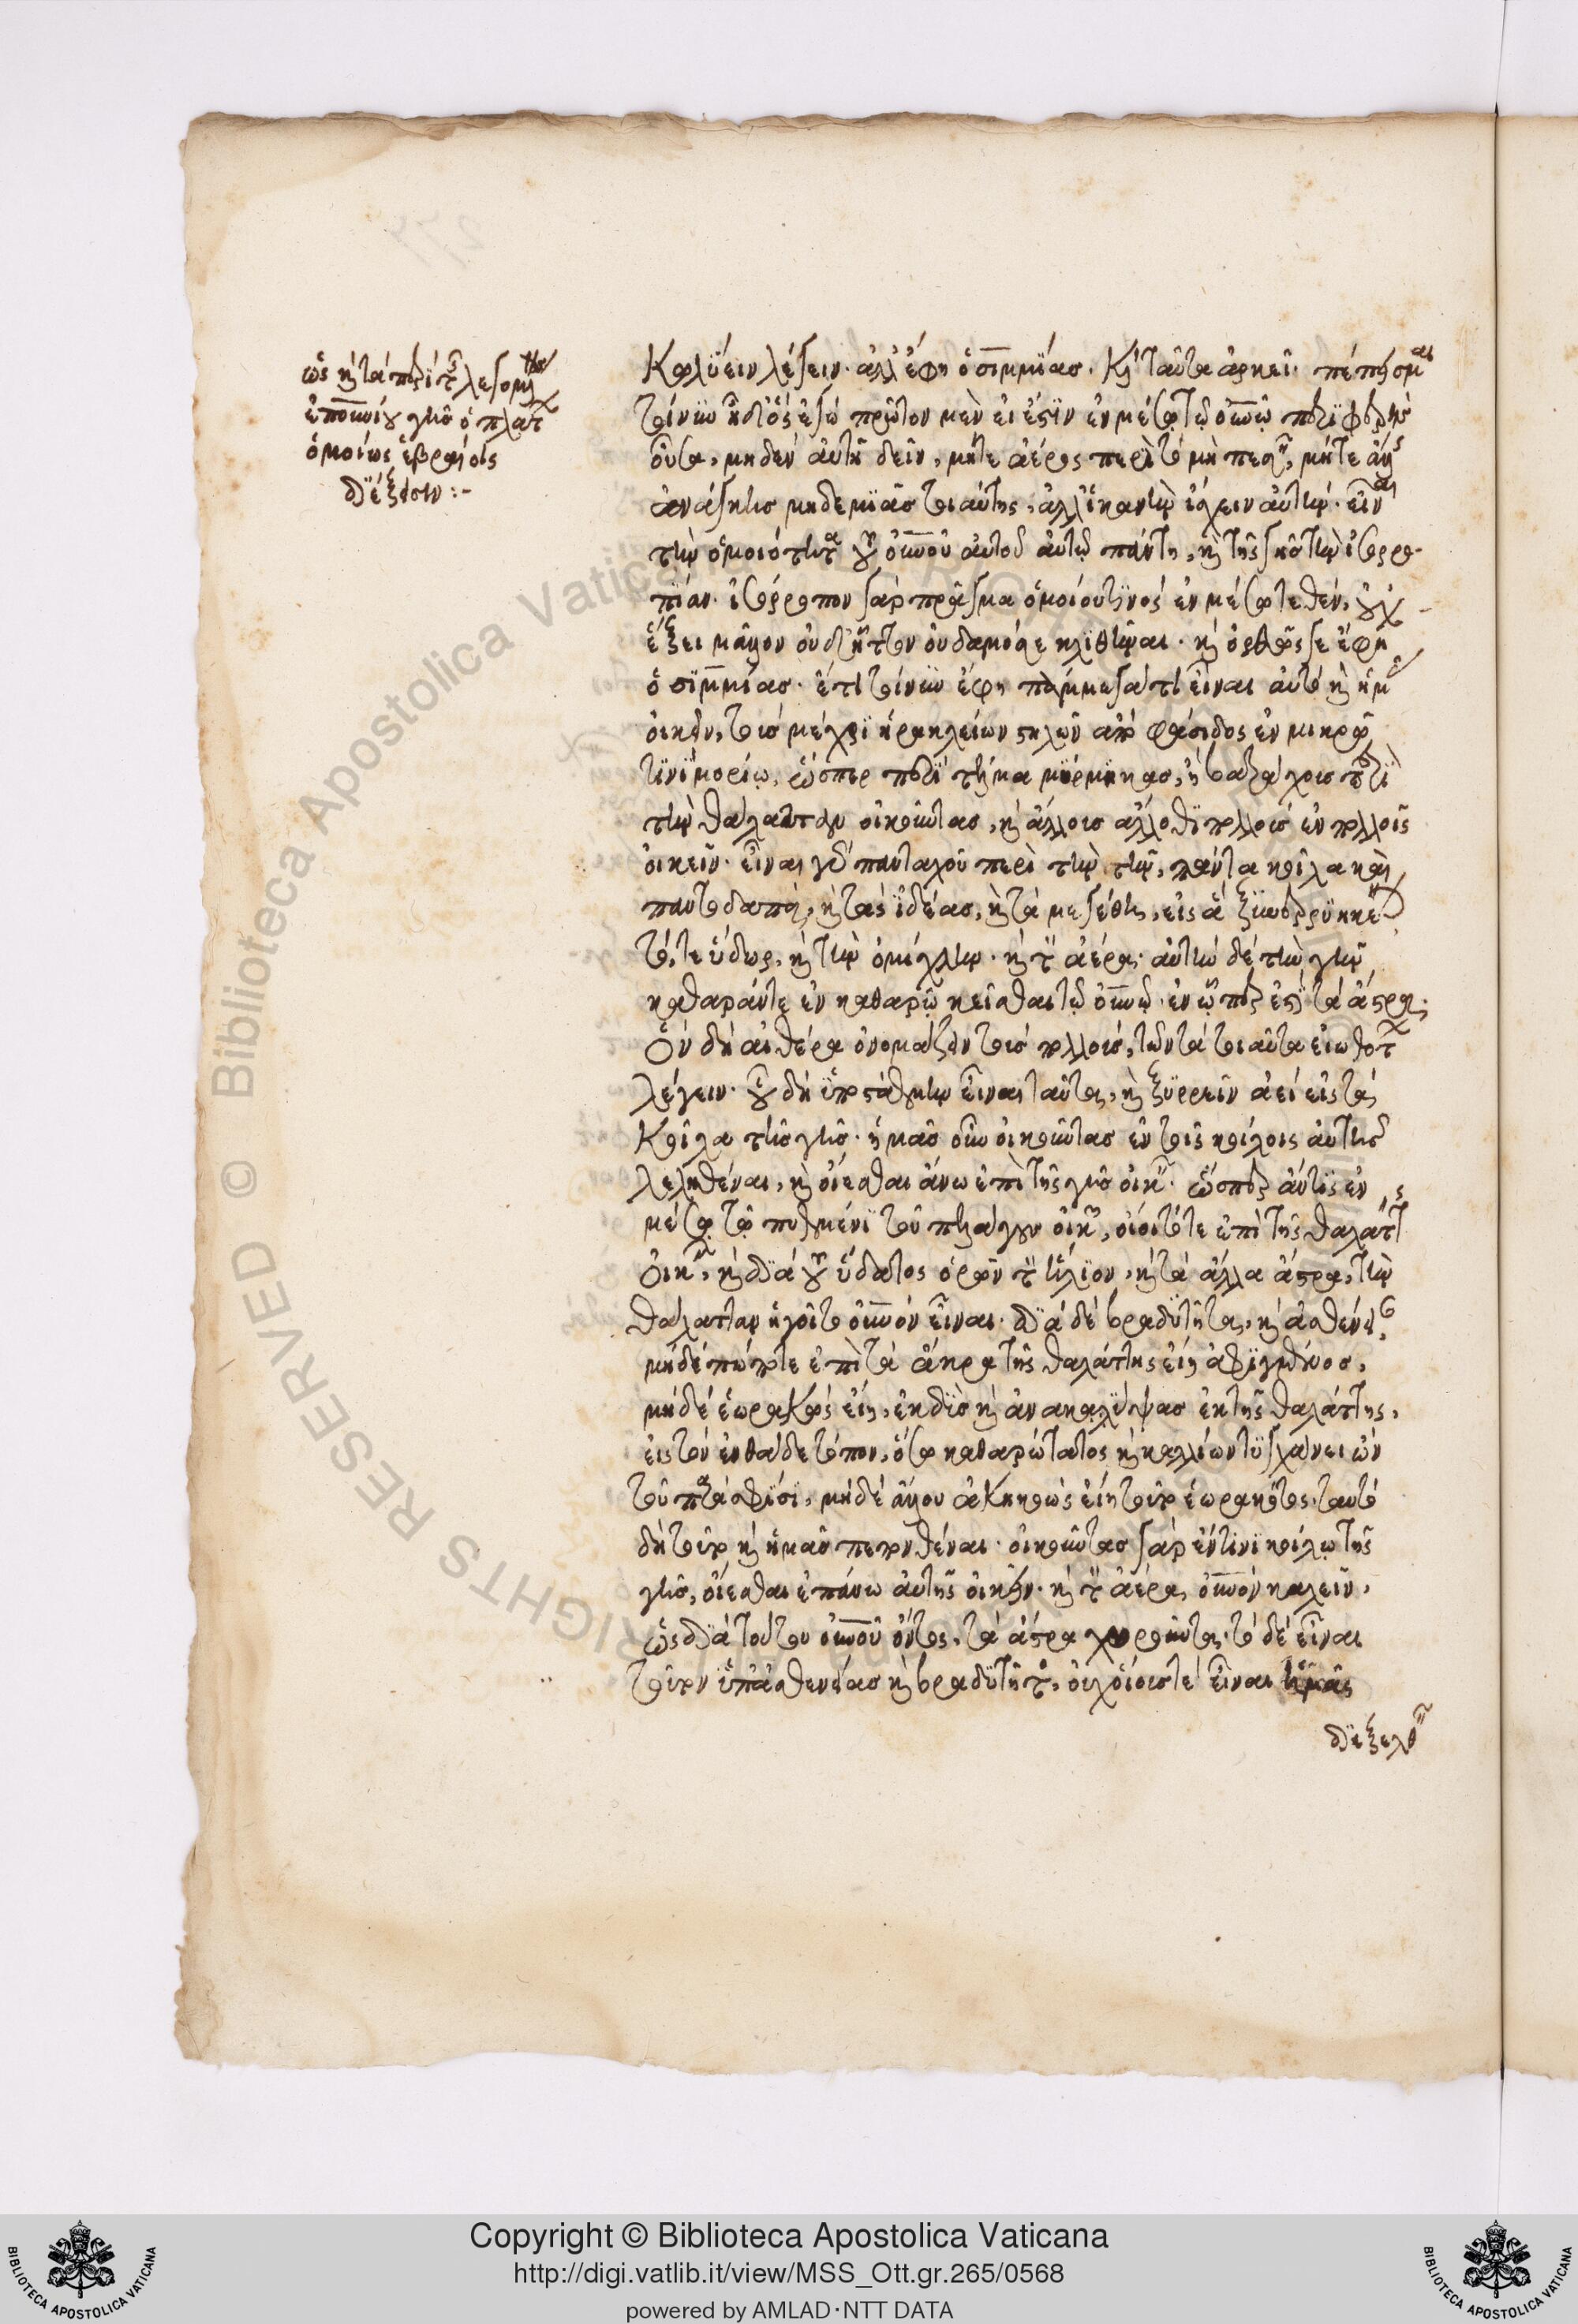 ὡς καὶ τὰ περὶ τῆς λεγομένης
ἐπουρανίου γῆς ὁ πλάτων
ὁμοίως ἑβραίοις
διέξεισιν:-
κωλύειν λέγειν. ἀλλ' ἔφη ὁ σιμμίας. καὶ ταῦτα ἀρκεῖ. πέπεισμαι
τοίνυν ἦ δ' ὃς ἐγὼ πρῶτον μὲν εἰ ἔστιν ἐν μέσῳ τῷ οὐρανῷ περιφερὴς
οὖσα, μηδὲν αὐτῇ δεῖν, μήτε ἀέρος πρὸς τὸ μὴ πεσεῖν, μήτε ἄλλης
ἀνάγκης μηδεμιᾶς τοιαύτης, ἀλλ' ἱκανὴν ἴσχειν αὐτὴν. εἶναι
τὴν ὁμοιότητα τοῦ οὐρανοῦ αὐτοῦ αὐτῷ πάντη, καὶ τῆς γῆς τὴν ἰσορρο-
πίαν. ἰσόρροπον γὰρ πρᾶγμα ὁμοίου τινὸς ἐν μέσῳ τεθὲν, οὐχ
ἕξει μᾶλλον οὐδ' ἧττον οὐδαμόσε κλιθῆναι. καὶ ὀρθῶς γε ἔφη
ὁ σιμμίας. ἔτι τοίνυν ἔφη πάμμεγά τι εἶναι αὐτὸ καὶ ἡμᾶς
οἰκεῖν, τοὺς μέχρι ἡρακλείων στηλῶν ἀπὸ φάσιδος ἐν μικρῷ
τινὶ μορίῳ, ὥσπερ περὶ τέλμα μύρμηκας, ἢ βατράχους περὶ
τὴν θάλατταν οἰκοῦντας, καὶ ἄλλους ἄλλοθι πολλοὺς ἐν πολλοῖς
οἰκεῖν. εἶναι γὰρ πανταχοῦ περὶ τὴν γῆν, πάντα κοῖλα καὶ
παντοδαπὰ, καὶ τὰς ἰδέας, καὶ τὰ μεγέθη, εἰς ἃ ξυνερρυηκέναι
τό, τε ὕδωρ, καὶ τὴν ὁμίχλην. καὶ τὸν ἀέρα. αὐτὴν δὲ τὴν γῆν
καθαρὰν τε ἐν καθαρῷ κεῖσθαι τῷ οὐρανῷ. ἐν ᾧπερ ἐστὶ τὰ ἄστρα.
ὃν δὴ αἰθέρα ὀνομάζειν τοὺς πολλοὺς, τῶν τὰ τοιαῦτα εἰωθότων
λέγειν. οὗ δὴ ὑποστάθμην εἶναι ταῦτα, καὶ ξυρρεῖν ἀεὶ εἰς τὰ
κοῖλα τῆς γῆς. ἡμᾶς οὖν οἰκοῦντας ἐν τοῖς κοίλοις αὐτῆς
λεληθέναι, καὶ οἴεσθαι ἄνω ἐπὶ τῆς γῆς οἰκεῖν. ὥσπερ ἄν τις ἐν
μέσῳ τῷ πυθμένι τοῦ πελάγους οἰκῶν, οἴοιτό τε ἐπὶ τῆς θαλάττης
οἰκεῖν, καὶ διὰ τοῦ ὕδατος ὁρῶν τὸν ἥλιον, καὶ τὰ ἄλλα ἄστρα, τὴν
θάλατταν ἡγοῖτο οὐρανὸν εἶναι. διὰ δὲ βραδύτητα, καὶ ἀσθένειαν
μηδὲ πώποτε ἐπὶ τὰ ἄκρα τῆς θαλάττης εἴη ἀφιγμένος,
μηδὲ ἑωρακὼς εἴη, ἐκδὺς καὶ ἀνακαλύψας ἐκ τῆς θαλάττης,
εἰς τὸν ἐνθάδε τόπον, ὅσῳ καθαρώτατος καὶ καλλίων τυγχάνει ὢν
τοῦ παρὰ σφίσι, μηδὲ ἄλλου ἀκηκοὼς εἴη τοῦ ἑωρακότος. ταυτὸ
δὴ τοῦτο καὶ ἡμᾶς πεπονθέναι. οἰκοῦντας γὰρ ἔν τινι κοίλῳ τῆς
γῆς, οἴεσθαι ἐπάνω αὐτῆς οἰκεῖν. καὶ τὸν ἀέρα, οὐρανὸν καλεῖν,
ὡς διὰ τούτου οὐρανοῦ ὄντος, τὰ ἄστρα χωροῦντα. τὸ δὲ εἶναι
τοιοῦτον ὑπ' ἀσθενείας καὶ βραδύτητος, οὐχ οἵους τε εἶναι ἡμᾶς
διεξελθεῖν
Copyright © Biblioteca Apostolica Vaticana
http://digi.vatlib.it/view/MSS_Ott.gr.265/0568
powered by AMLAD·NTT DATA